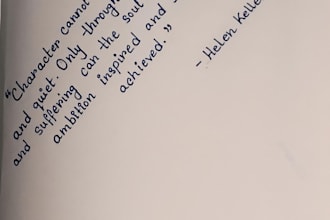 "Character cannot
and quiet. Only through
and suffering can the soul
ambition inspired and
achieved."
- Helen Keller